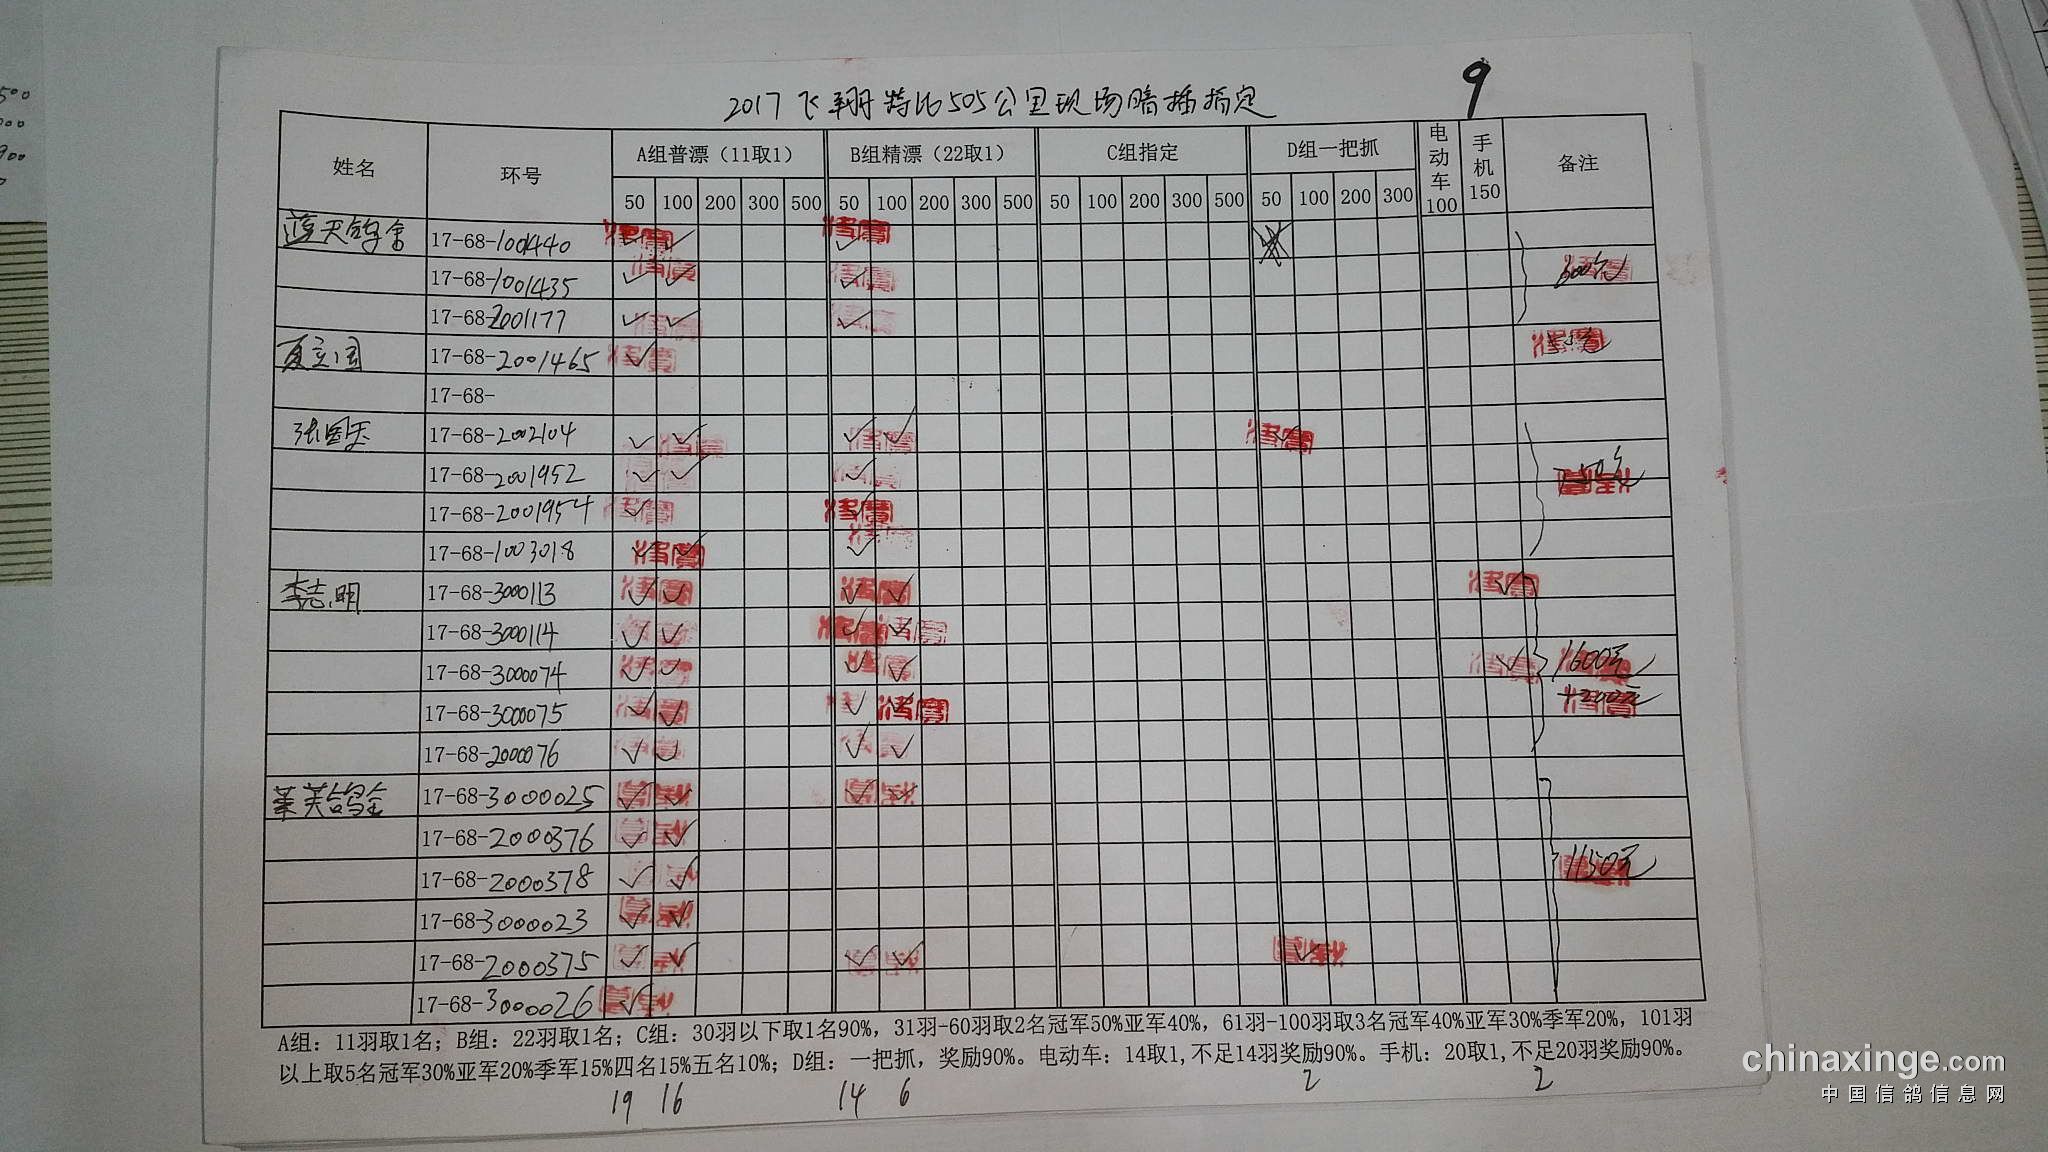 2017飞翔特比505公里现场暗插指定
9
姓名 环号 A组普漂（11取1） B组精漂（22取1） C组指定 D组一把抓 电动车100 手机150 备注
50 100 200 300 500 50 100 200 300 500 50 100 200 300 500 50 100 200 300
蓝天鸽舍 17-68-1001440 ✓ ✓ ✓
17-68-1001435 ✓ ✓ ✓ 600元
17-68-2001177 ✓ ✓ ✓
夏立国 17-68-2001465 ✓
17-68-
张国玉 17-68-2002104 ✓ ✓ ✓ ✓ ✓
17-68-2001952 ✓ ✓ ✓ 750元
17-68-2001954 ✓ ✓
17-68-1003018 ✓ ✓ ✓
李志明 17-68-3000113 ✓ ✓ ✓ ✓ ✓
17-68-3000114 ✓ ✓ ✓ ✓
17-68-3000074 ✓ ✓ ✓ ✓ ✓ 1600元
17-68-3000075 ✓ ✓ ✓ ✓
17-68-2000076 ✓ ✓ ✓ ✓
莱芙鸽舍 17-68-3000025 ✓ ✓ ✓ ✓
17-68-2000376 ✓ ✓
17-68-2000378 ✓ ✓ 1150元
17-68-3000023 ✓ ✓
17-68-2000375 ✓ ✓ ✓ ✓ ✓
17-68-3000026 ✓
A组：11羽取1名；B组：22羽取1名；C组：30羽以下取1名90%，31羽-60羽取2名冠军50%亚军40%，61羽-100羽取3名冠军40%亚军30%季军20%，101羽
以上取5名冠军30%亚军20%季军15%四名15%五名10%；D组：一把抓，奖励90%。电动车：14取1,不足14羽奖励90%。手机：20取1,不足20羽奖励90%。
19 16 14 6 2 2
chinaxinge.com
中国信鸽信息网